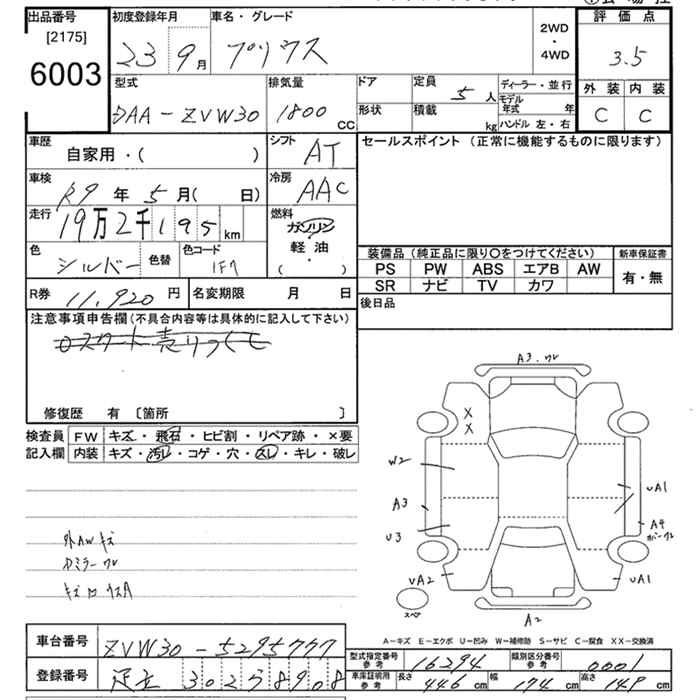 出品番号 初度登録年月 車名・グレード 評価点
[2175]
6003
23 9月 プリウス 2WD・4WD 3.5
型式 排気量 ドア 定員 ディーラー・並行 外装 内装
DAA-ZVW30 1800CC 5人 モデル年式 年 C C
形状 積載 kg ハンドル 左・右
車歴 シフト セールスポイント (正常に機能するものに限ります)
自家用・( ) AT
車検 冷房
R9年5月( 日) AAC
走行 燃料
19万2千195km ガソリン
軽油
( ・ )
色 色替 色コード
シルバー 1F7
装備品 (純正品に限り○をつけてください) 新車保証書
PS PW ABS エアB AW 有・無
SR ナビ TV カワ
R券 11,920円 名変期限 月 日 後日品
注意事項申告欄(不具合内容等は具体的に記入して下さい)
修復歴 有 〔箇所 〕
検査員 FW キズ・飛石・ヒビ割・リペア跡・×要
記入欄 内装 キズ・汚レ・コゲ・穴・スレ・キレ・破レ
A3.ワレ
X
X
W2
UA1
A3
A4
U3
UA2 UA1
スペア
A2
外AWキズ
A-キズ E-エクボ U-凹み W-補修跡 S-サビ C-腐食 XX-交換済
車台番号 ZVW30-5295777
型式指定番号 参考 16294 類別区分番号 参考 0001
登録番号 足立 302 8908
車庫証明用 参考 長さ 446cm 幅 174cm 高さ 149cm